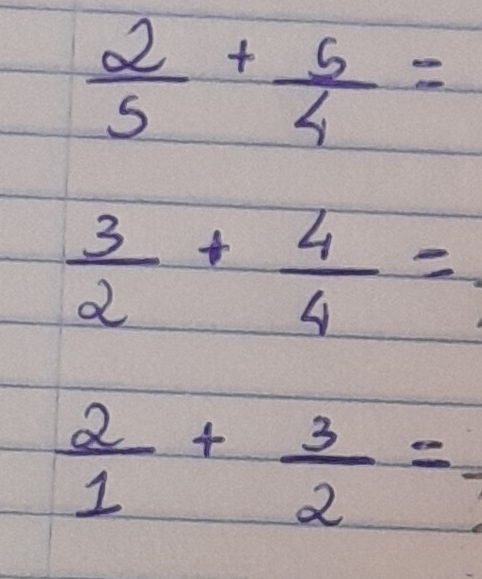 2/5 + 5/4 =
3/2 + 4/4 =
2/1 + 3/2 =